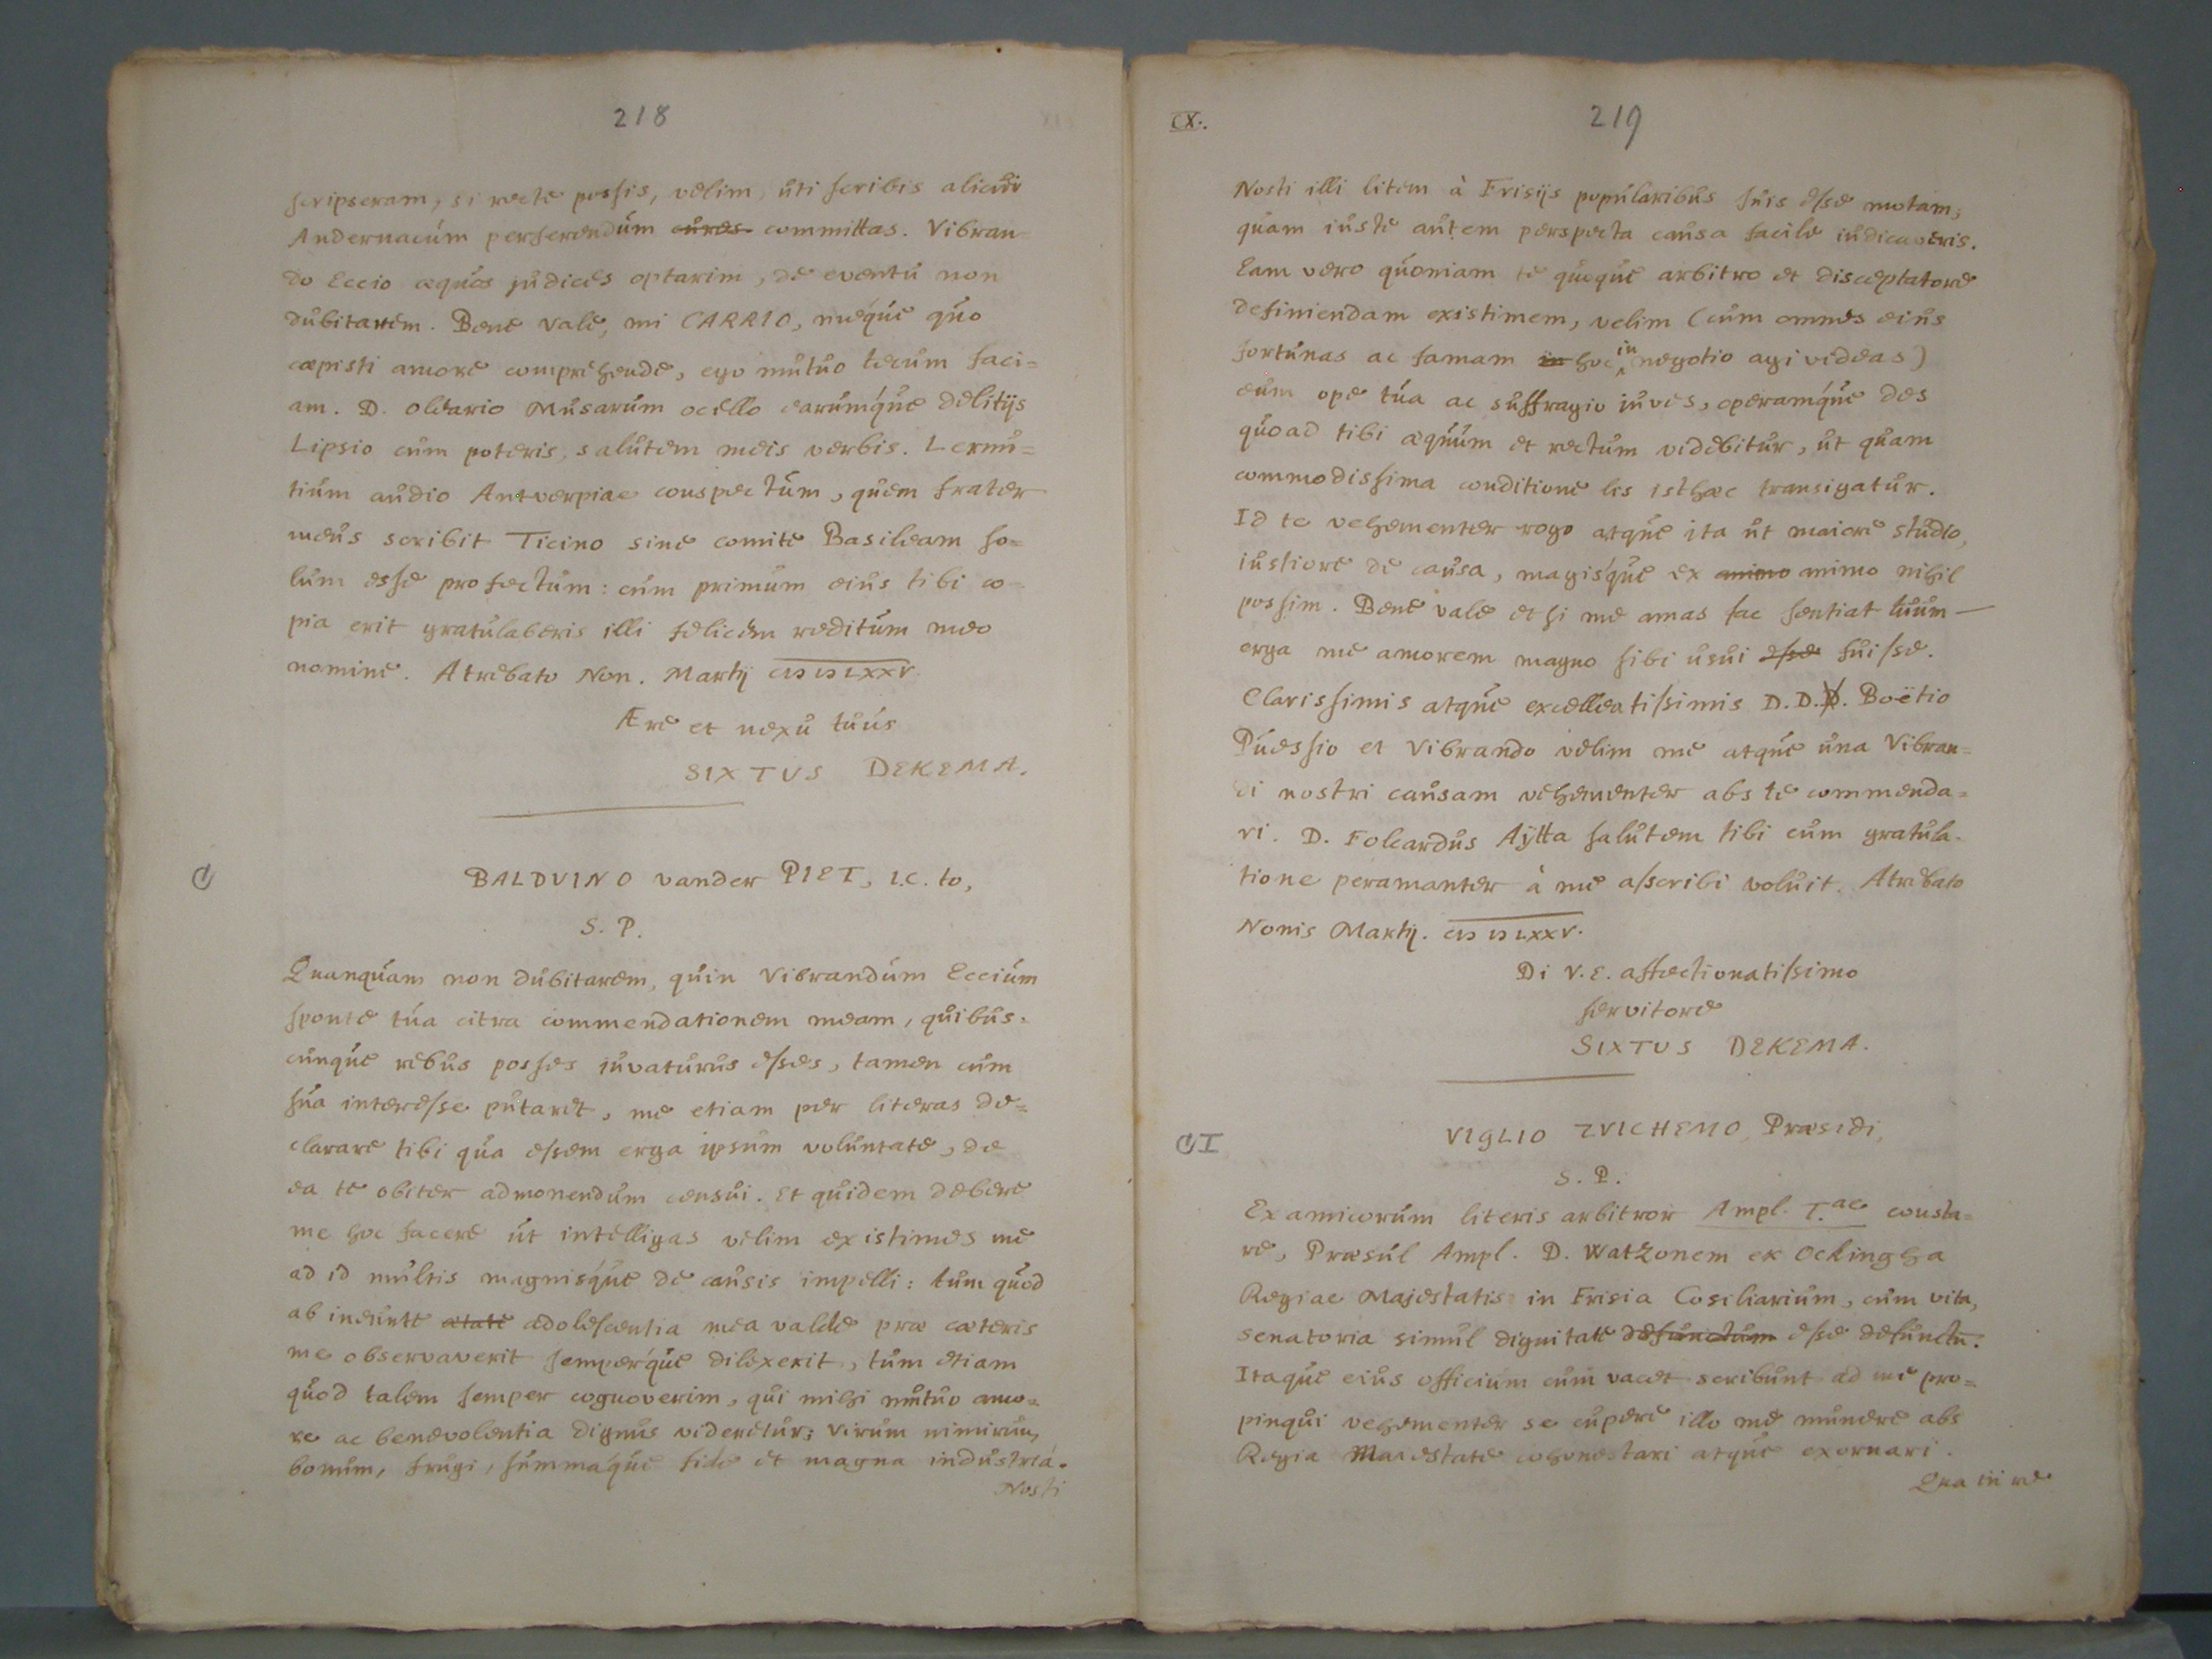 218
scripseram, si recte possis, velim, uti scribis alicui
Andernacum perferendum cures committas. Vibran=
do Eccio æquos judices optarim, de eventu non
dubitarem. Bene vale, mi CARRIO, meque quo
cœpisti amore comprehende, ego mutuo tecum faci=
am. D. Oldario Musarum ocello earumque delitijs
Lipsio cum poteris, salutem meis verbis. Lernu=
tium audio Antverpiae conspectum, quem frater
meus scribit Ticino sine comite Basileam so=
lum esse profectum: cum primum eius tibi co=
pia erit gratulaberis illi felicem reditum meo
nomine. Atrebato Non. Martij CIƆ IƆ LXXV.
Ære et nexu tuus
SIXTUS DEKEMA.
C
BALDVINO vander PIET, I.C. to,
S. P.
Quanquam non dubitarem, quin Vibrandum Eccium
sponte tua citra commendationem meam, quibus=
cunque rebus posses iuvaturus esses, tamen cum
sua interesse putaret, me etiam per literas de=
clarare tibi qua essem erga ipsum voluntate, de
ea te obiter admonendum censui. Et quidem debere
me hoc facere ut intelligas velim existimes me
ad id multis magnisque de causis impelli: tum quod
ab ineunte ætate adolescentia mea valde præ cæteris
me observaverit semperque dilexerit, tum etiam
quod talem semper cognoverim, qui mihi mutuo amo=
re ac benevolentia dignus videretur; virum nimirum
bonum, frugi, summaque fide et magna industriâ.
Nosti
CX.
219
Nosti illi litem à Frisijs popularibus suis esse motam;
quam iuste autem perspecta causa facile iudicaveris.
Eam vero quoniam te quoque arbitro et disceptatore
definiendam existimem, velim (cum omnes eius
fortunas ac famam in hoc in negotio agi videas)
eum ope tua ac suffragio iuves, operamque des
quoad tibi æquum et rectum videbitur, ut quam
commodissima conditione lis isthæc transigatur.
Id te vehementer rogo atque ita ut maiore studio,
iustiore de causa, magisque ex animo animo nihil
possim. Bene vale et si me amas fac sentiat tuum
erga me amorem magno sibi usui esse fuisse.
Clarissimis atque excellentissimis D.D.D. Boëtio
Puessio et Vibrando velim me atque una Vibran=
di nostri causam vehementer abs te commenda=
ri. D. Folcardus Aÿtta salutem tibi cum gratula=
tione peramanter à me ascribi voluit. Atrebato
Nonis Martij. CIƆ IƆ LXXV.
Di V.E. affectionatissimo
servitore
SIXTUS DEKEMA.
CI
VIGLIO ZVICHEMO, Præsidi,
S. P.
Ex amicorum literis arbitror Ampl. T.ae consta=
re, Præsul Ampl. D. Watzonem ex Ockingha
Regiae Majestatis in Frisia Cosiliarium, cum vita,
senatoria simul dignitate defunctum esse defunctū.
Itaque eius officium cum vacet scribunt ad me pro=
pinqui vehementer se cupere illo me munere abs
Regia Maiestate cohonestari atque exornari.
Qua in re